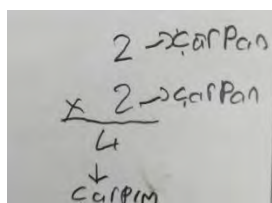 2 → Çarpan
x 2 → Çarpan
4
↓
Çarpım